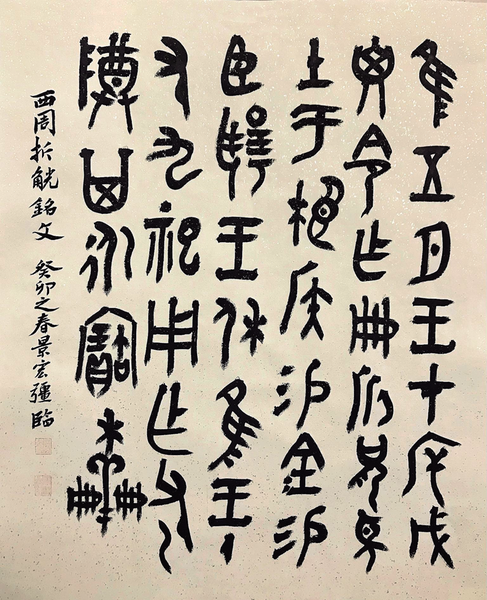 隹五月王才斥戊
子令乍冊折兄望
土于相侯易金易
臣揚王休隹王十
又九祀用乍父乙
尊其永寶木羊冊
西周折觥銘文 癸卯之春景宏疆臨